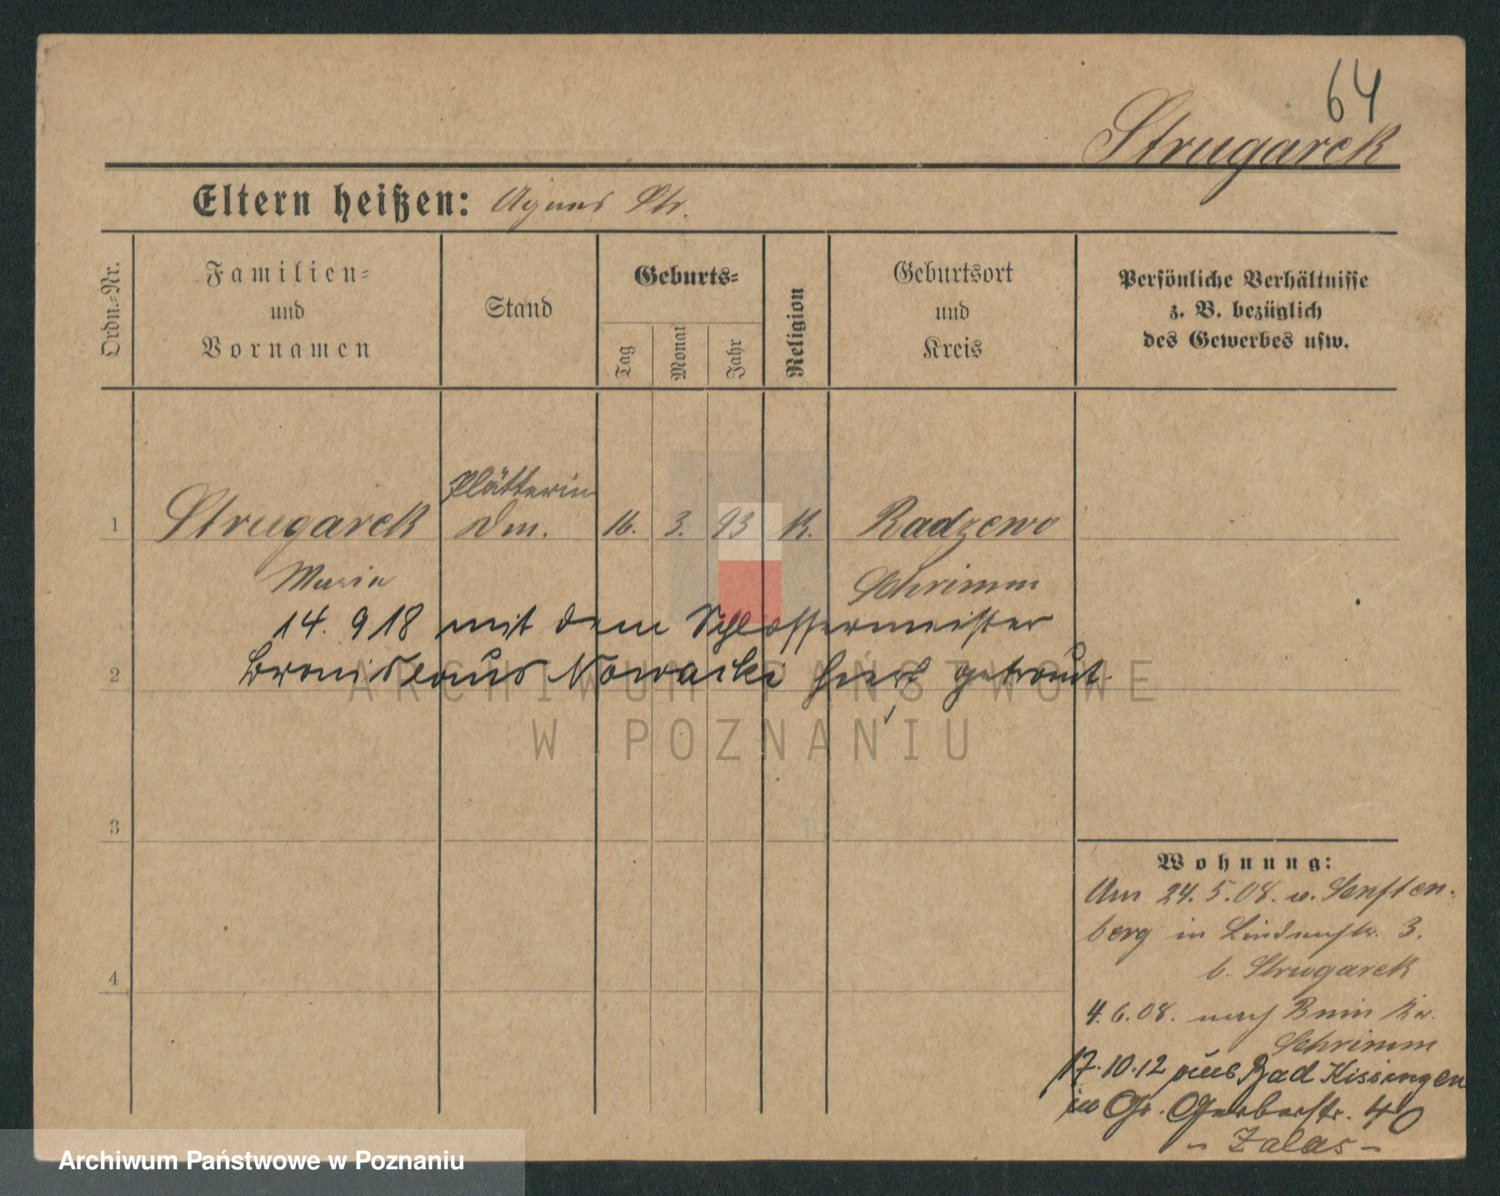 64
Strugarek
Eltern heißen: Agnes Str.
Ordn.-Nr.
Familien-
und
Vornamen
Stand
Geburts-
Tag
Monat
Jahr
Religion
Geburtsort
und
Kreis
Persönliche Verhältnisse
z. B. bezüglich
des Gewerbes usw.
Plätterin
1 Strugarek Dm. 16. 3. 93 K. Radzewo
Maria Schrimm
14. 9 18 mit dem Schlossermeister
2 Bronislaus Nowacki hier getraut.
3
Wohnung:
Am 24. 5. 08. v. Senften-
berg in Lindenstr. 3.
b. Strugarek
4
4. 6. 08. nach Bnin Kr.
Schrimm
17. 10. 12 aus Bad Kissingen
in Gr. Gerberstr. 40
- Zalas -
ARCHIWUM PAŃSTWOWE
W POZNANIU
Archiwum Państwowe w Poznaniu